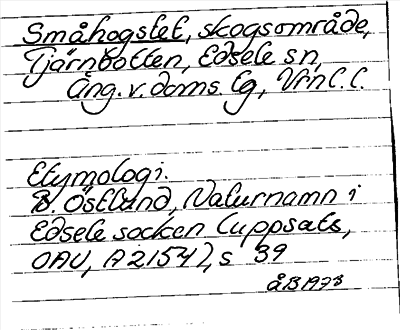 Småhogstet, skogsområde,
Tjärnbotten, Edsele sn,
Ång. v. doms. lg, Vnl. l.
Etymologi.
B. Östlund, Naturnamn i
Edsele socken (uppsats,
OAU, A 2154), s 39
ÅB 1973